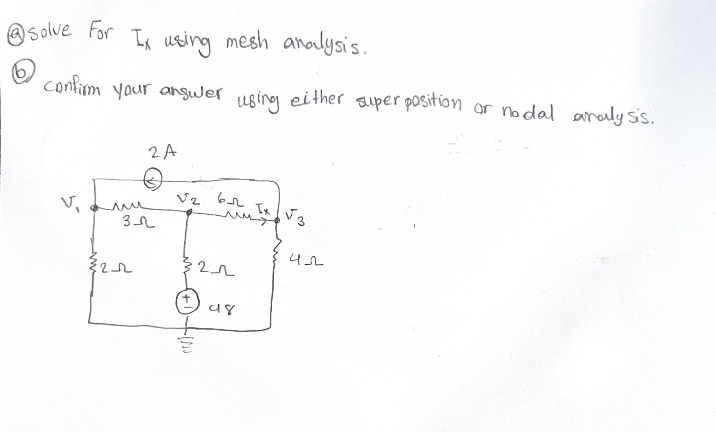 (a) solve For Ix using mesh analysis.
(b) confirm your answer using either super position or nodal analysis.
2 A
V1
3 Ω
V2
6 Ω
Ix
V3
2 Ω
2 Ω
4 Ω
+
-
48